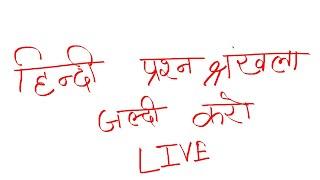 हिन्दी प्रश्न श्रंखला
जल्दी करो
LIVE